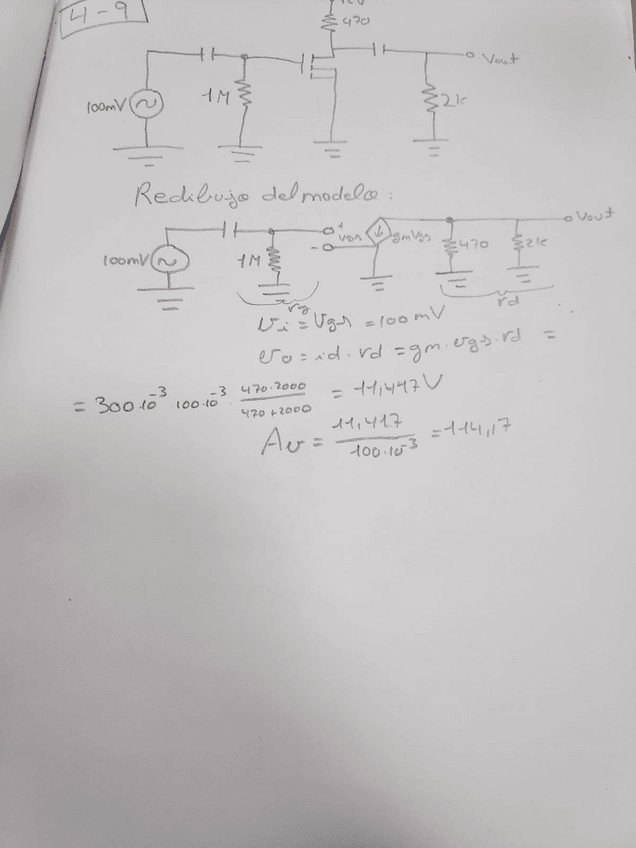 4-9
12V
470
Vout
100mV
1M
2k
Redibujo del modelo:
Vout
+
vgs
-
gmvgs
470
2k
100mV
1M
rg
rd
Vi = Vgs = 100 mV
vo = id · rd = gm · vgs · rd =
= 300·10^-3 · 100·10^-3 · 470·2000 / 470+2000 = 11,417V
Av = 11,417 / 100·10^-3 = 114,17